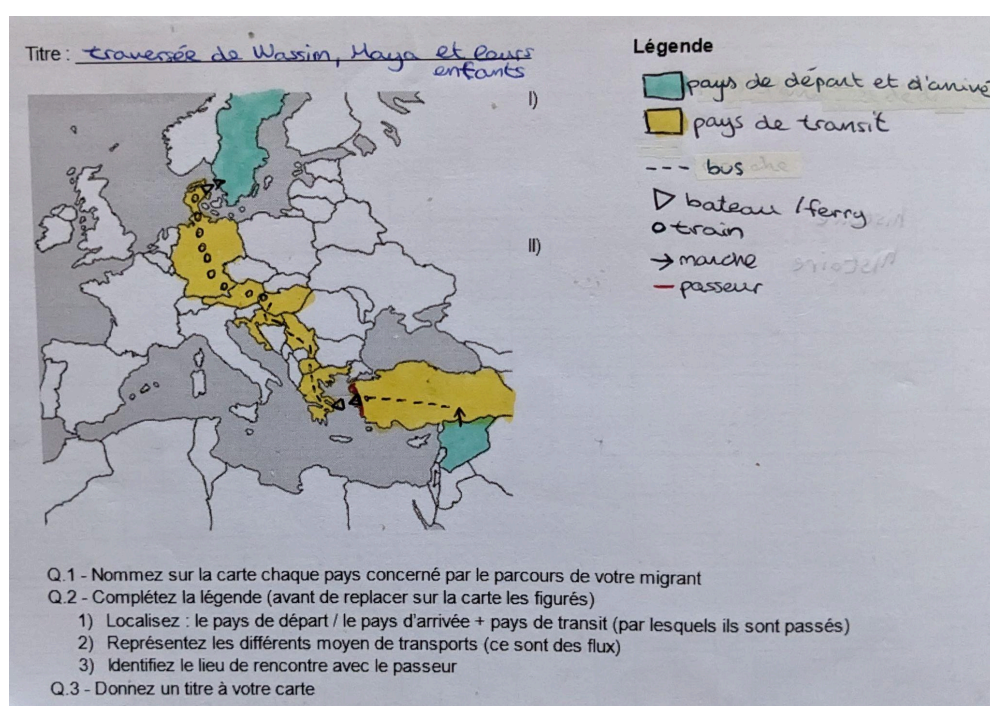 Titre : traversée de Wassim, Maya et leurs
enfants
I)
II)
Légende
pays de départ et d'arrivé
pays de transit
bus
bateau / ferry
train
marche
passeur
histoire
Q.1 - Nommez sur la carte chaque pays concerné par le parcours de votre migrant
Q.2 - Complétez la légende (avant de replacer sur la carte les figurés)
1) Localisez : le pays de départ / le pays d'arrivée + pays de transit (par lesquels ils sont passés)
2) Représentez les différents moyen de transports (ce sont des flux)
3) Identifiez le lieu de rencontre avec le passeur
Q.3 - Donnez un titre à votre carte